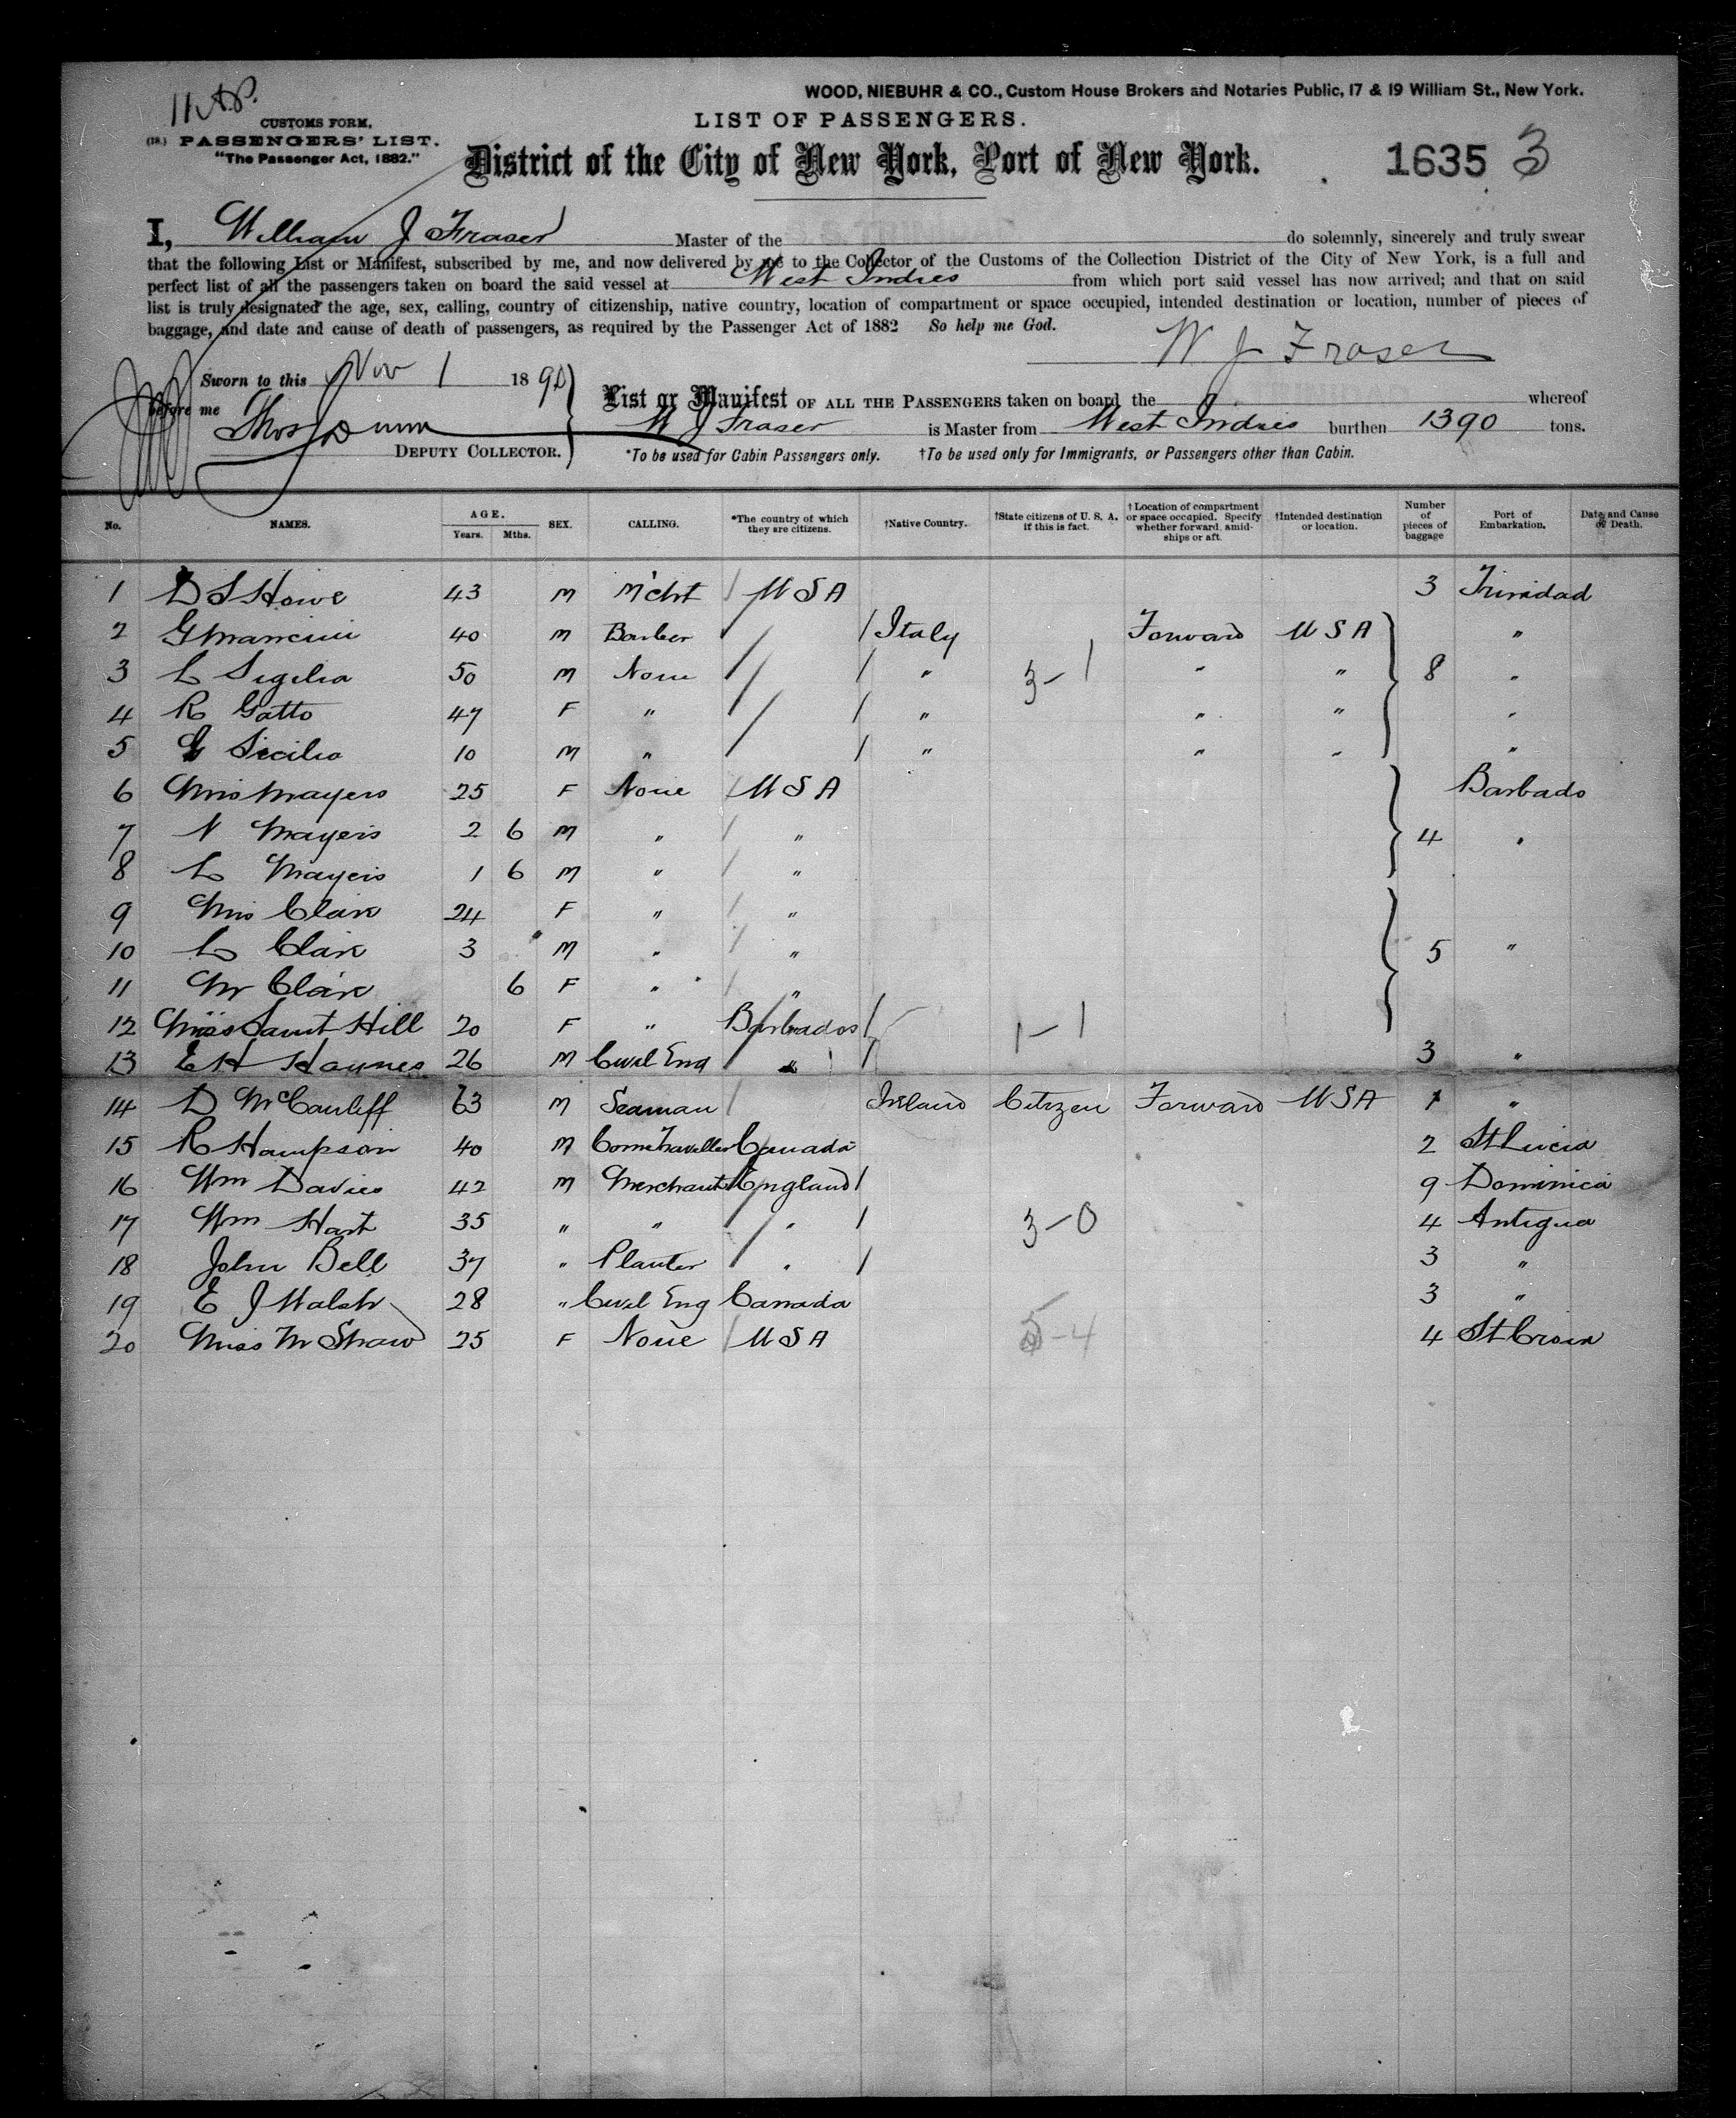 WOOD, NIEBUHR & CO., Custom House Brokers and Notaries Public, 17 & 19 William St., New York.
CUSTOMS FORM,
(18.) PASSENGERS' LIST.
"The Passenger Act, 1882."
LIST OF PASSENGERS.
District of the City of New York, Port of New York.
1635 3
I, William J Fraser Master of the do solemnly, sincerely and truly swear
that the following List or Manifest, subscribed by me, and now delivered by me to the Collector of the Customs of the Collection District of the City of New York, is a full and
perfect list of all the passengers taken on board the said vessel at West Indies from which port said vessel has now arrived; and that on said
list is truly designated the age, sex, calling, country of citizenship, native country, location of compartment or space occupied, intended destination or location, number of pieces of
baggage, and date and cause of death of passengers, as required by the Passenger Act of 1882 So help me God.
W J Fraser
Sworn to this Nov 1 1890
before me
Thos Dunn
DEPUTY COLLECTOR.
List or Manifest OF ALL THE PASSENGERS taken on board the whereof
W J Fraser is Master from West Indies burthen 1390 tons.
*To be used for Cabin Passengers only. †To be used only for Immigrants, or Passengers other than Cabin.
No. NAMES. AGE. Years. Mths. SEX. CALLING. *The country of which they are citizens. †Native Country. †State citizens of U. S. A. if this is fact. †Location of compartment or space occupied. Specify whether forward, amidships or aft. †Intended destination or location. Number of pieces of baggage Port of Embarkation. Date and Cause of Death.
1 D S Howe 43 M M'cht / U S A 3 Trinidad
2 G Mancini 40 M Barber / / Italy Forward U S A "
3 L Sigilia 50 M None / / " 3-1 " " 8 "
4 R Gatto 47 F " / / " " " "
5 G Sicilia 10 M " / / " " " "
6 Mrs Mayers 25 F None / U S A Barbado
7 N Mayers 2 6 M " / " 4 "
8 L Mayers 1 6 M " / "
9 Mrs Clark 24 F " / "
10 L Clark 3 M " / " 5 "
11 M Clark 6 F " / "
12 Miss Saunt Hill 20 F " Barbados / 1-1
13 E H Haynes 26 M Civil Eng / " / 3 "
14 D McCauliff 63 M Seaman / Ireland Citizen Forward U S A 1 "
15 R Hampson 40 M Com Traveller Canada 2 St Lucia
16 Wm Davies 42 M Merchant England / 9 Dominica
17 Wm Hart 35 " " / " / 3-0 4 Antigua
18 John Bell 37 " Planter / " / 3 "
19 E J Walsh 28 " Civil Eng Canada 3 "
20 Miss M Shaw 25 F None / U S A 5-4 4 St Croix